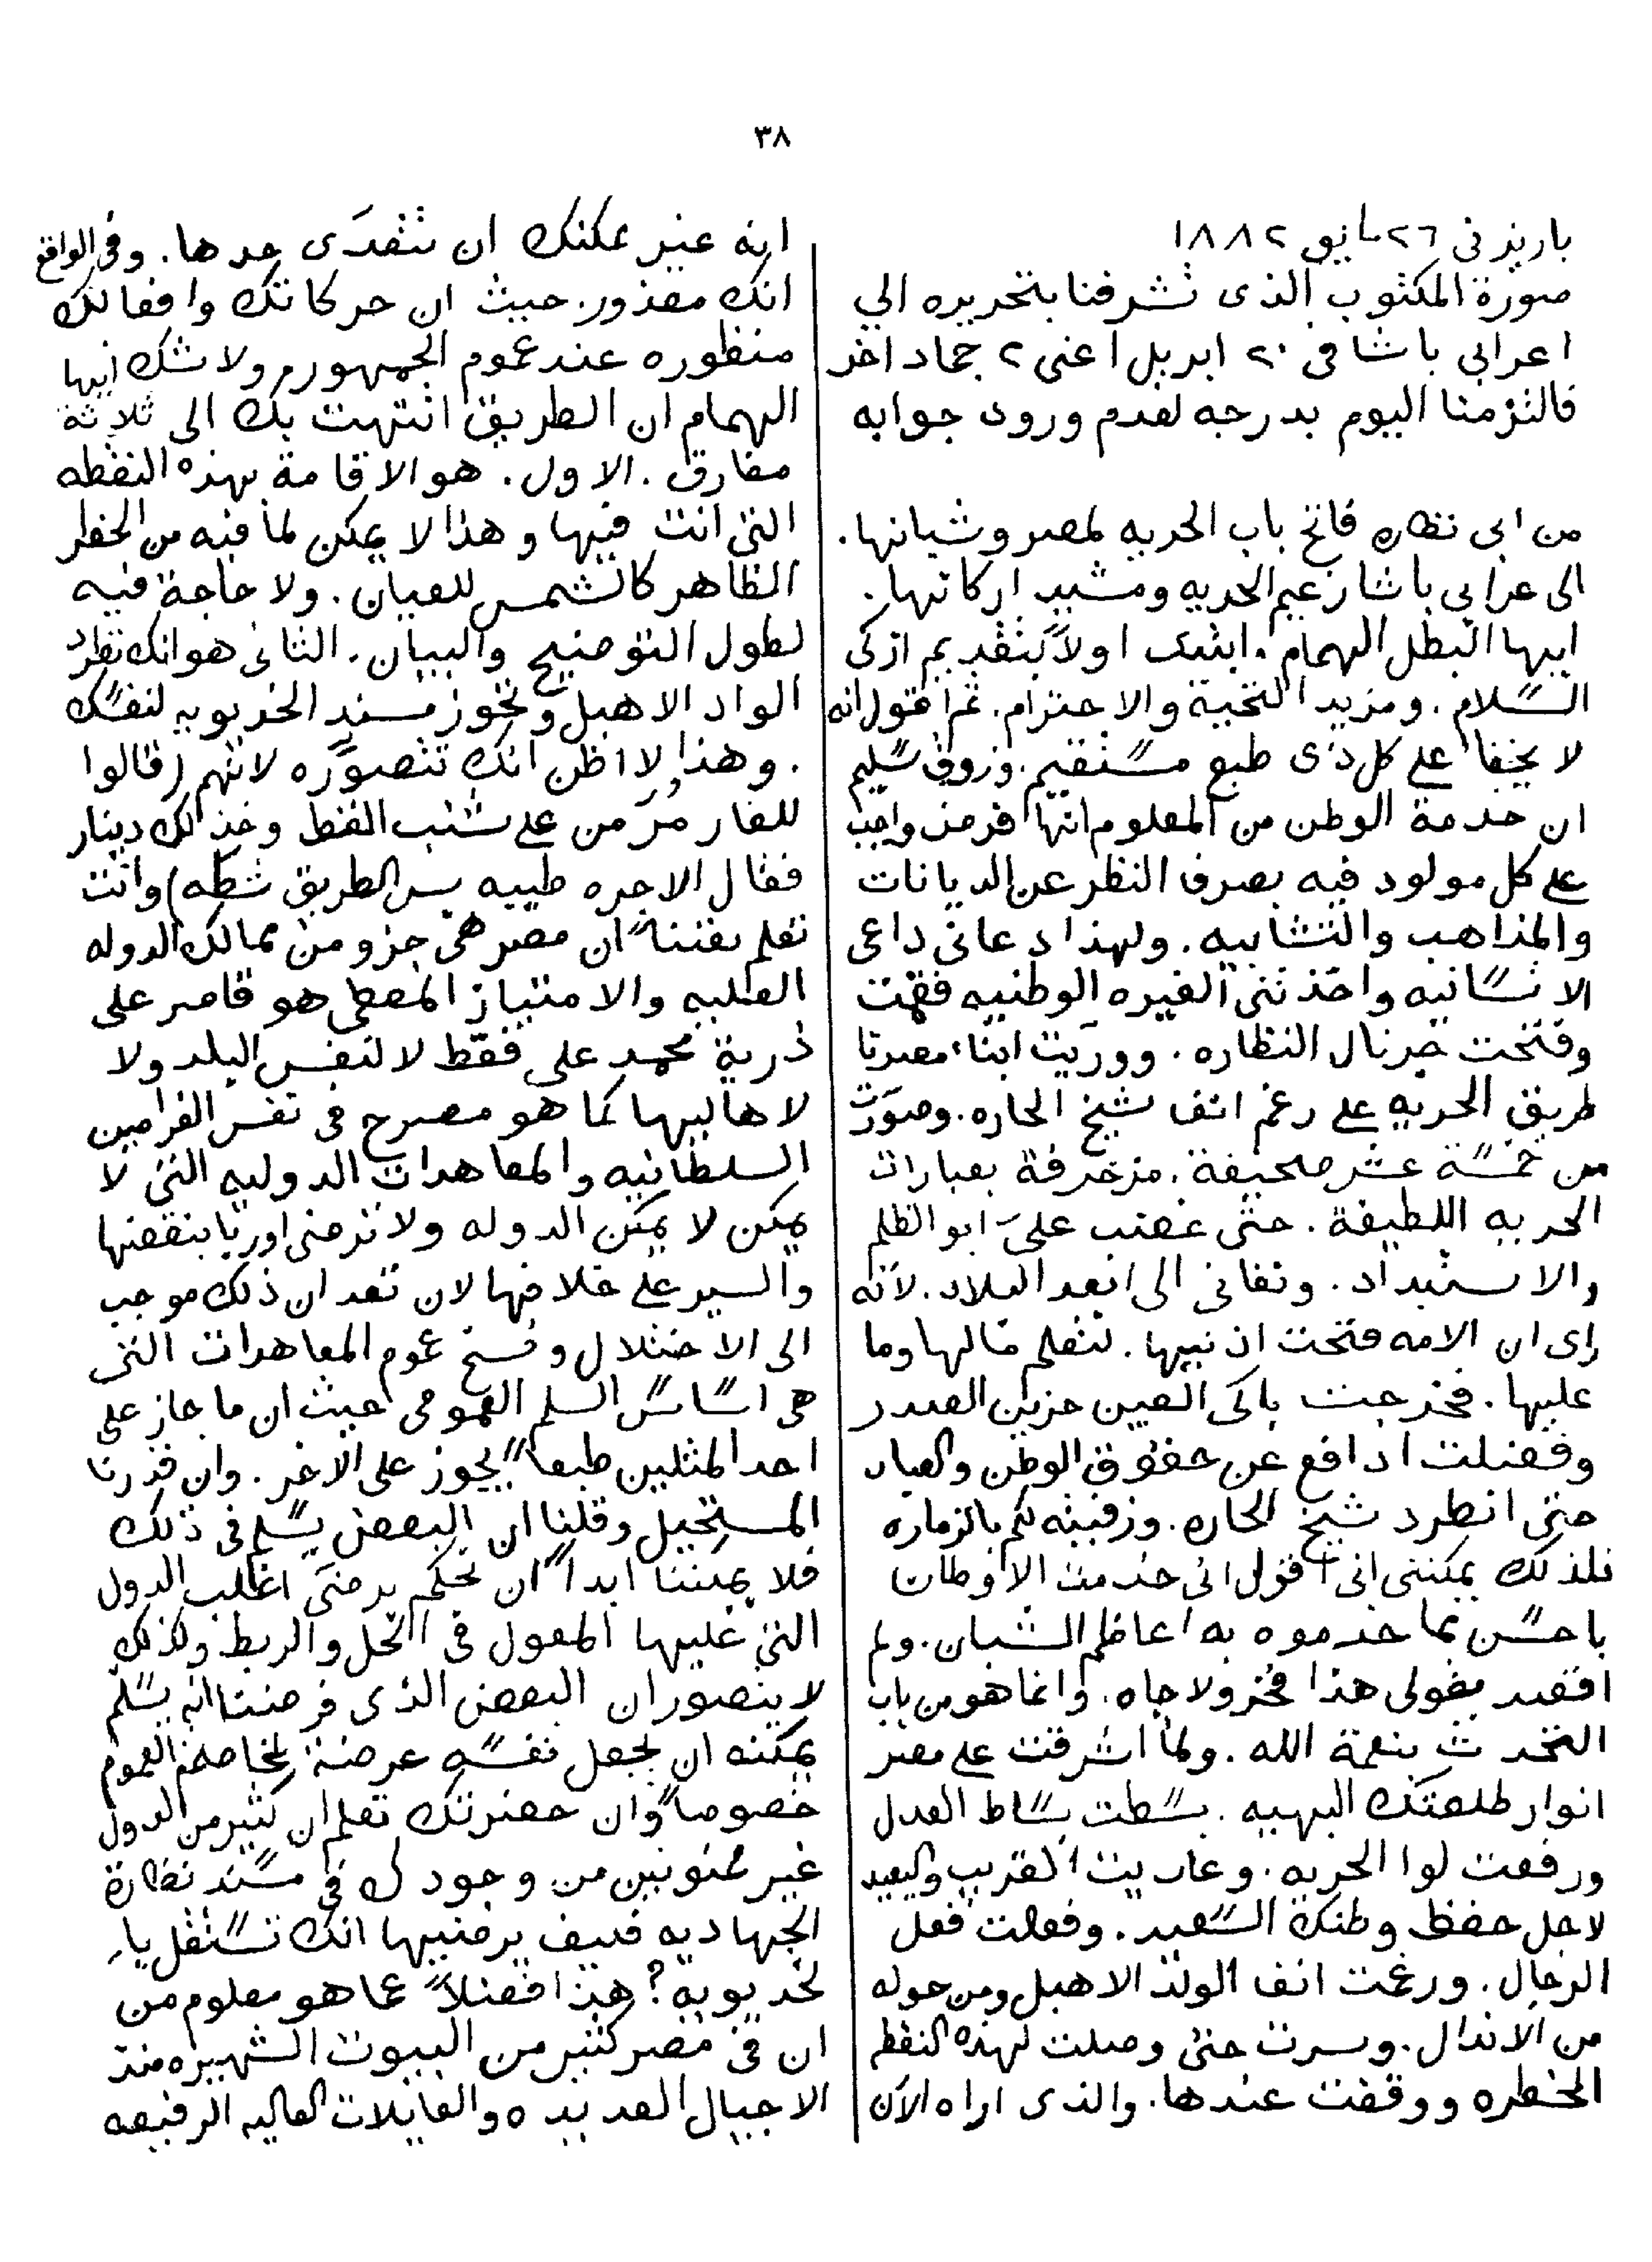 ٣٨
باريز في ٢٦ مايو ١٨٨٢
صورة المكتوب الذى تشرفنا بتحريره الي
اعرابي باشا فى ٢٠ ابريل اعنى ٢ جماد اخر
فالتزمنا اليوم بدرجه لعدم ورود جوابه
من ابى نظاره فاتح باب الحريه لمصر وشبانها.
الى عرابي باشا زعيم الحريه ومشيد اركانها.
ايها البطل الهمام. ابتدى اولاً بتقديم ازكى
السلام. ومزيد التحية والاحترام. ثم اقول انه
لا يخفا على كل ذى طبع مستقيم. وذوق سليم
ان خدمة الوطن من المعلوم انها فرض واجب
على كل مولود فيه بصرف النظر عن الديانات
والمذاهب والتشابيه. ولهذا دعانى داعى
الانسانيه واخذتنى الغيره الوطنيه فقمت
وفتحت جرنال النظاره. ووريت ابناء مصرنا
طريق الحريه على رغم انف شيخ الحاره. وصوّرت
من خمسة عشر صحيفة. مزخرفة بعبارات
الحريه اللطيفة. حتى غضب علىّ ابو الظلم
والاستبداد. ونفانى الى ابعد البلاد. لانه
راى ان الامه فتحت اذنيها. لتعلم مالها وما
عليها. فخرجت باكى العين حزين الصدر
وفضلت ادافع عن حقوق الوطن والعباد
حتى انطرد شيخ الحاره. وزفيته لكم بالزماره
فلذلك يمكننى انى اقول انى خدمت الاوطان
باحسن مما خدموه به اعاظم الشبان. ولم
اقصد بقولى هذا فخر ولا جاه. وانما هو من باب
التحدث بنعمة الله. ولما اشرقت على مصر
انوار طلعتك البهيه. بسطت بساط العدل
ورفعت لوا الحريه. وعاديت القريب والبعيد
لاجل حفظ وطنك السعيد. وفعلت فعل
الرجال. ورغمت انف الولد الاهبل ومن حوله
من الاندال. وسرت حتى وصلت لهذه النقطه
الخطره ووقفت عندها. والذى اراه الآن
انه غير ممكنك ان تتعدّى حدها. وفى الواقع
انك معذور. حيث ان حركاتك وافعالك
منظوره عند عموم الجمهور ولاشك ايها
الهمام ان الطريق انتهت بك الى ثلاثة
مفارق. الاول. هو الاقامة بهذه النقطه
التى انت فيها وهذا لا يمكن لما فيه من الخطر
الظاهر كالشمس للعيان. ولا حاجة فيه
لطول التوضيح والبيان. الثانى هو انك تطرد
الواد الاهبل وتحوز مسند الخديويه لنفسك
. وهذا لا اظن انك تتصوّره لانهم (قالوا
للفار مُر من على شنب القط وخذ لك دينار
فقال الاجره طيبه بس الطريق شطه) وانت
تعلم يقيناً ان مصر هى جزو من ممالك الدوله
العليه والامتياز المعطى هو قاصر على
ذرية محمد على فقط لا لنفس البلد ولا
لاهاليها كما هو مصرح فى نفس الفرامين
السلطانيه والمعاهدات الدوليه التى لا
يمكن لا يمكن الدوله ولا ترضى اوربا بنقضها
والسير على خلافها لان تعد ان ذلك موجب
الى الاختلال وفسخ عموم المعاهدات التى
هى اساس السلم العمومى حيث ان ما جاز على
احد المثلين طبعاً يجوز على الاخر. وان قدرنا
المستحيل وقلنا ان البعض يسلم فى ذلك
فلا يمكننا ابداً ان نحكم برضى اغلب الدول
التى عليها المعول فى الحل والربط ولذلك
لا يتصور ان البعض الذى فرضنا انه يسلم
يمكنه ان يجعل نفسه عرضة لمخاصمة العموم
خصوصاً وان حضرتك تعلم ان كثير من الدول
غير ممنونين من وجودك فى مسند نظارة
الجهاديه فكيف يرضيها انك تستقل با
لخديويه؟ هذا فضلاً عما هو معلوم من
ان فى مصر كثير من البيوت الشهيره منذ
الاجيال العديده والعايلات العاليه الرفيعه